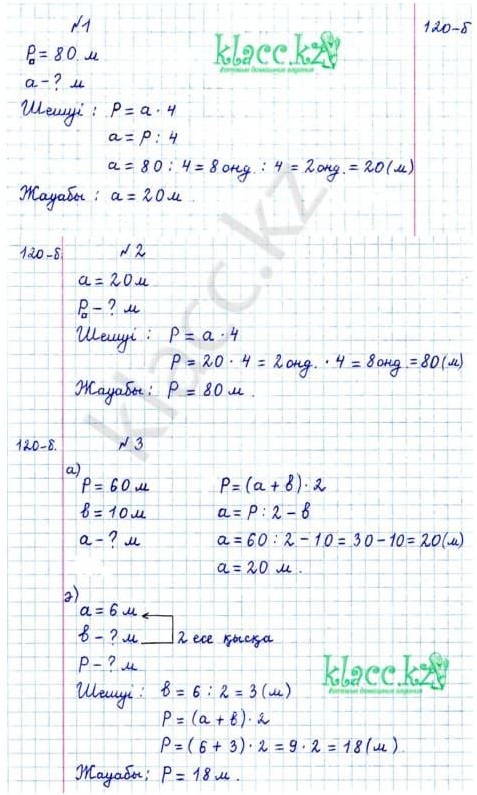 №1
120-б
klacc.kz
готовые домашние задания
P□ = 80 м
a - ? м
Шешуі : P = a · 4
a = P : 4
a = 80 : 4 = 8 онд. : 4 = 2 онд. = 20 (м)
Жауабы : a = 20 м .
klacc.kz
120-б. №2
a = 20 м
P□ - ? м
Шешуі : P = a · 4
P = 20 · 4 = 2 онд. · 4 = 8 онд. = 80 (м)
Жауабы : P = 80 м .
120-б. №3
а)
P = 60 м P = (a + b) · 2
b = 10 м a = P : 2 - b
a - ? м a = 60 : 2 - 10 = 30 - 10 = 20 (м)
a = 20 м .
ә)
a = 6 м
b - ? м 2 есе қысқа
P - ? м
klacc.kz
готовые домашние задания
Шешуі : b = 6 : 2 = 3 (м)
P = (a + b) · 2
P = (6 + 3) · 2 = 9 · 2 = 18 (м) .
Жауабы ; P = 18 м .